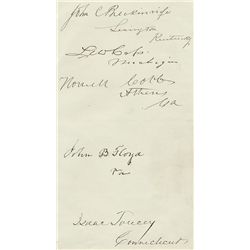 John C Breckinridge
Lexington
Kentucky
Michigan
Howell Cobb
Athens
Ga
John B Floyd
Va
Isaac Toucey
Connecticut